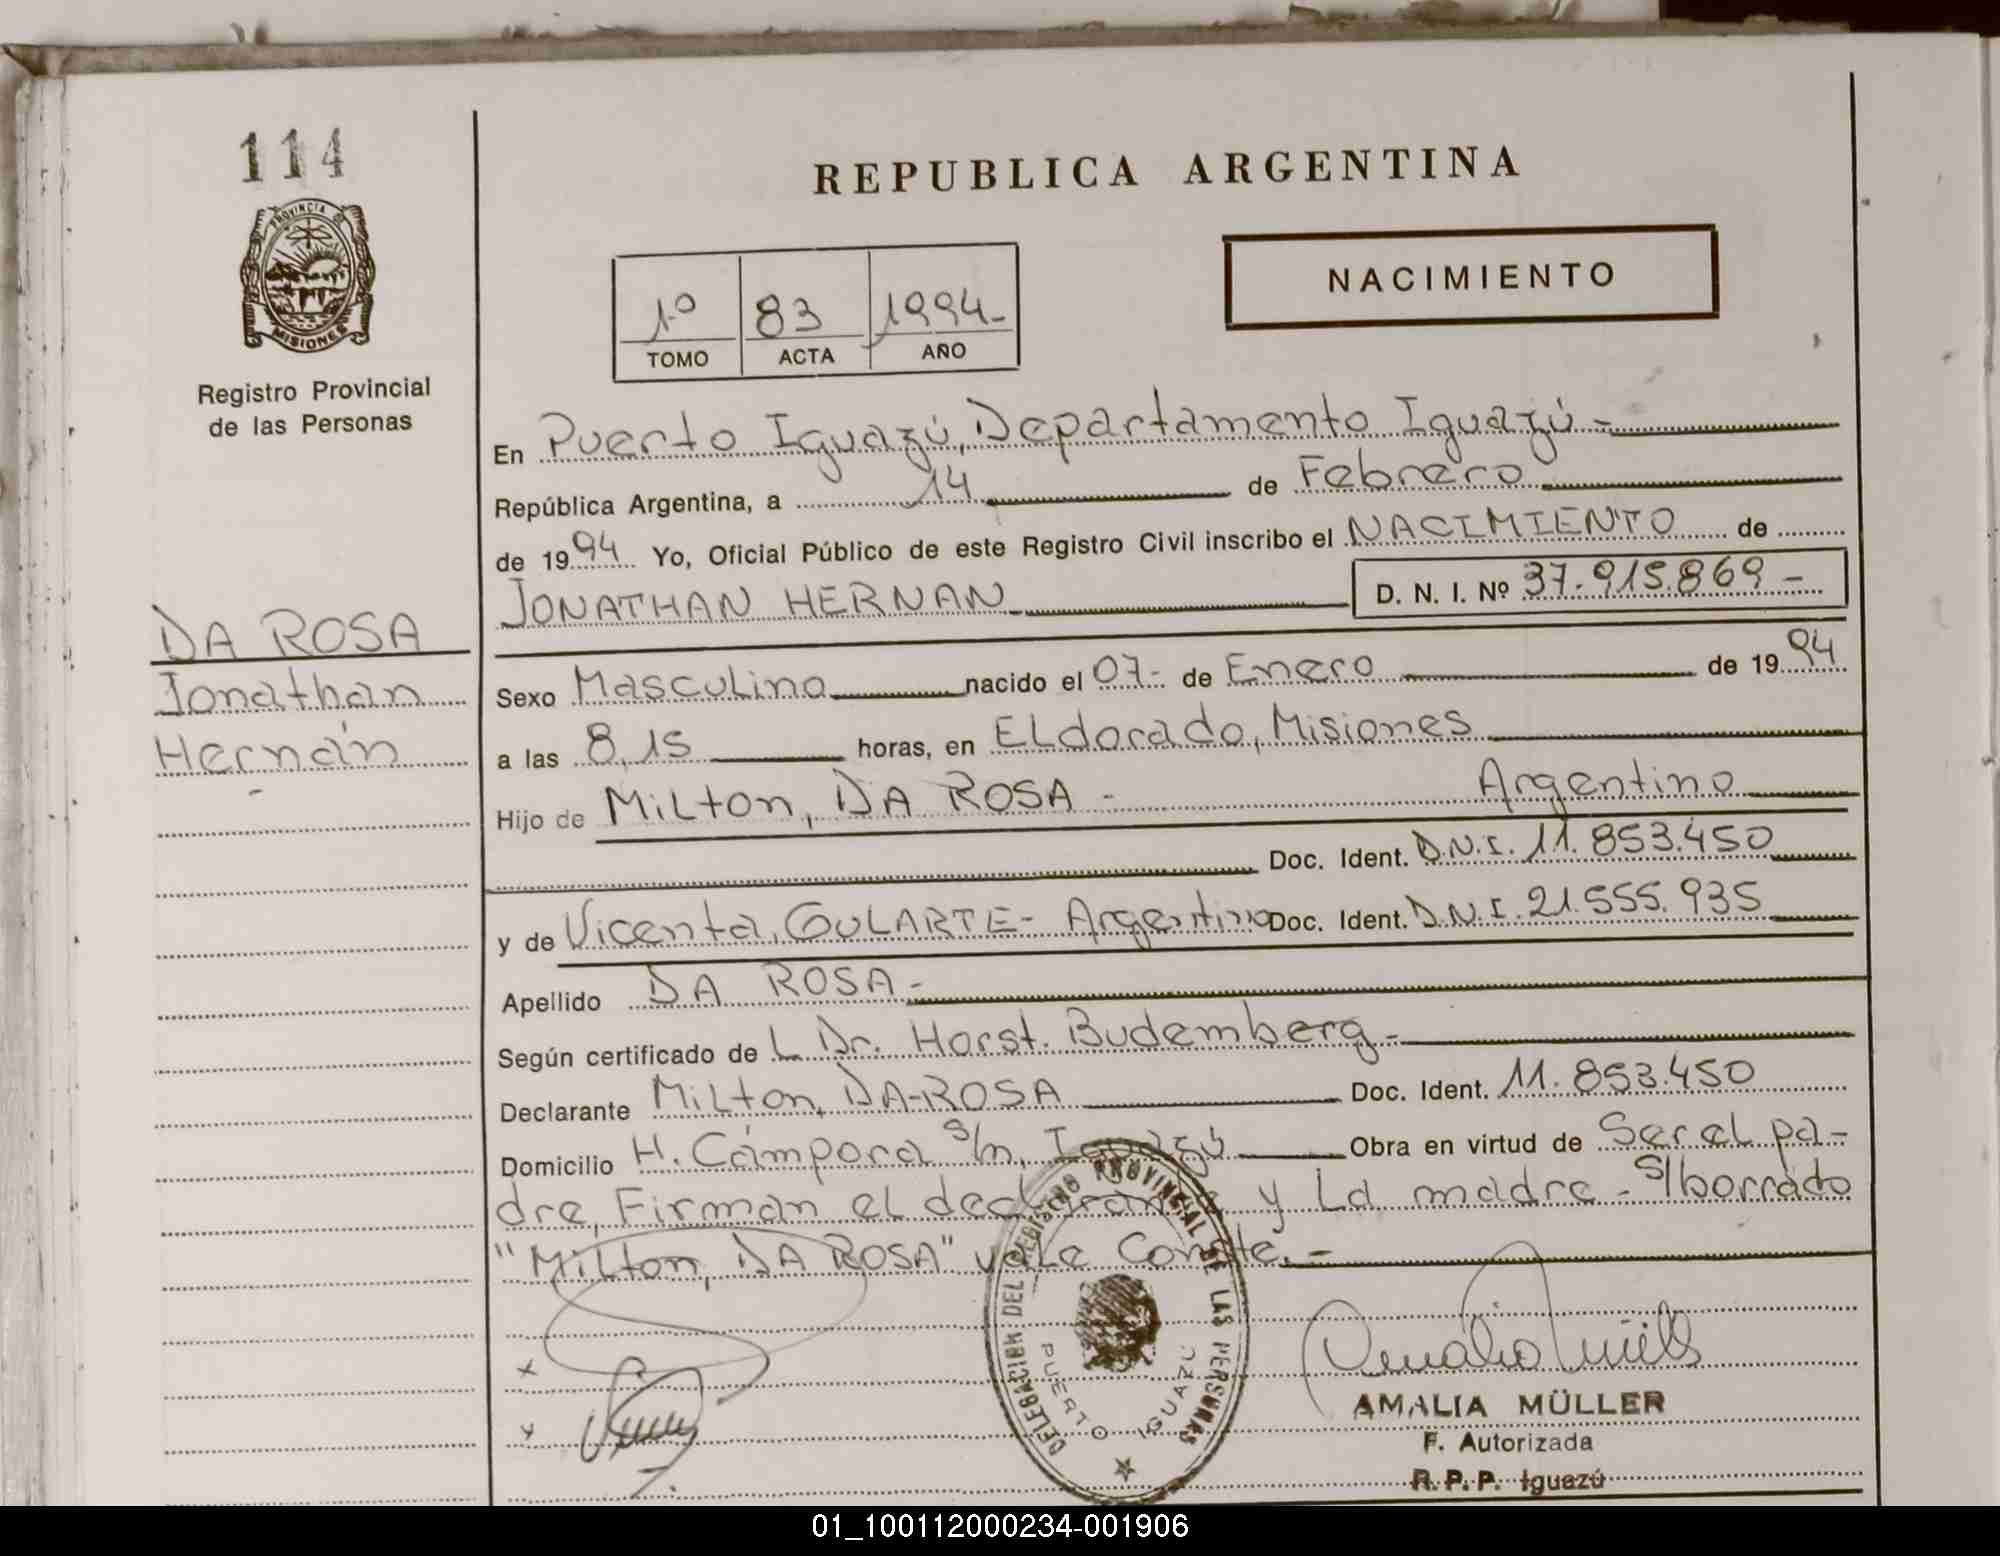 114
PROVINCIA DE
MISIONES
Registro Provincial
de las Personas
DA ROSA
Jonathan
Hernán
REPUBLICA ARGENTINA
NACIMIENTO
1º 83 1994-
TOMO ACTA AÑO
En Puerto Iguazú, Departamento Iguazú -
República Argentina, a 14 de Febrero
de 1994 Yo, Oficial Público de este Registro Civil inscribo el NACIMIENTO de
JONATHAN HERNAN D. N. I. Nº 37.915.869 -
Sexo Masculino nacido el 07- de Enero de 1994
a las 8,15 horas, en Eldorado, Misiones
Hijo de Milton, DA ROSA - Argentino
Doc. Ident. D.N.I. 11.853.450
y de Vicenta, GULARTE - Argentina Doc. Ident. D.N.I. 21.555.935
Apellido DA ROSA -
Según certificado de L. Dr. Horst. Budemberg -
Declarante Milton, DA-ROSA Doc. Ident. 11.853.450
Domicilio H. Cámpora s/n, Iguazú Obra en virtud de Ser el pa-
dre, Firman el declarante y La madre - S/borrado
"Milton, DA ROSA" vale Conste. -
DELEGACION DEL REGISTRO PROVINCIAL DE LAS PERSONAS
PUERTO IGUAZU
AMALIA MÜLLER
F. Autorizada
R. P. P. Iguazú
01_100112000234-001906